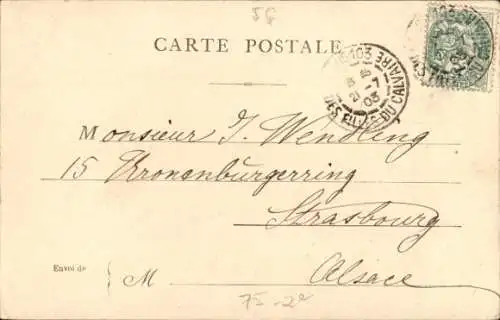 58
CARTE POSTALE
15 103
21 15
-7
03
DES FILLES DU CALVAIRE
Monsieur J. Wendling
15 Kronenburgerring
Strasbourg
Alsace
Envoi de
M
75-2e